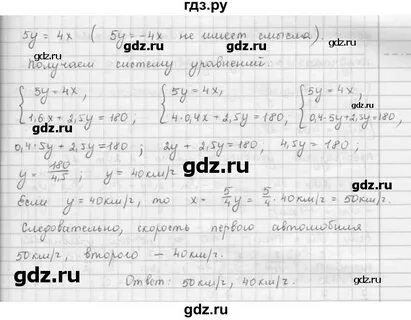 гдз.ру
5y = 4x ( 5y = -4x не имеет смысла).
Получаем систему уравнений:
{ 5y = 4x, { 5y = 4x, { 5y = 4x,
1,6x + 2,5y = 180, 4·0,4x + 2,5y = 180, 0,4·5y + 2,5y = 180,
0,4·5y + 2,5y = 180 ; 2y + 2,5y = 180, 4,5y = 180 ;
y = 180/4,5 ; y = 40 км/г.
Если y = 40 км/г, то x = 5/4 y = 5/4 · 40 км/г = 50 км/г.
Следовательно, скорость первого автомобиля
50 км/г, второго - 40 км/г.
Ответ: 50 км/г, 40 км/г.
gdz.ru
gdz.ru
gdz.ru
gdz.ru
gdz.ru
gdz.ru
gdz.ru
gdz.ru